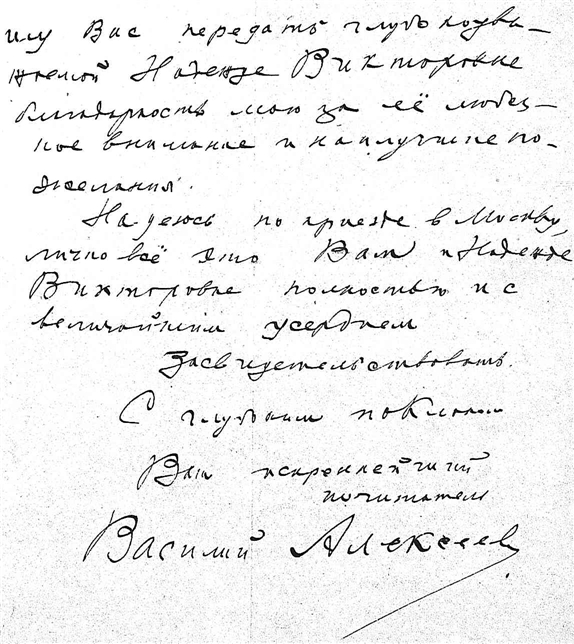 шу Вас передать глубокоува-
жаемой Надежде Викторовне
благодарность мою за её любез-
ное внимание и наилучшие по-
желания.
Надеюсь по приезде в Москву,
лично всё это Вам и Надежде
Викторовне полностью и с
величайшим усердием
засвидетельствовать.
С глубоким поклоном
Ваш искреннейший
почитатель
Василий Алексеев